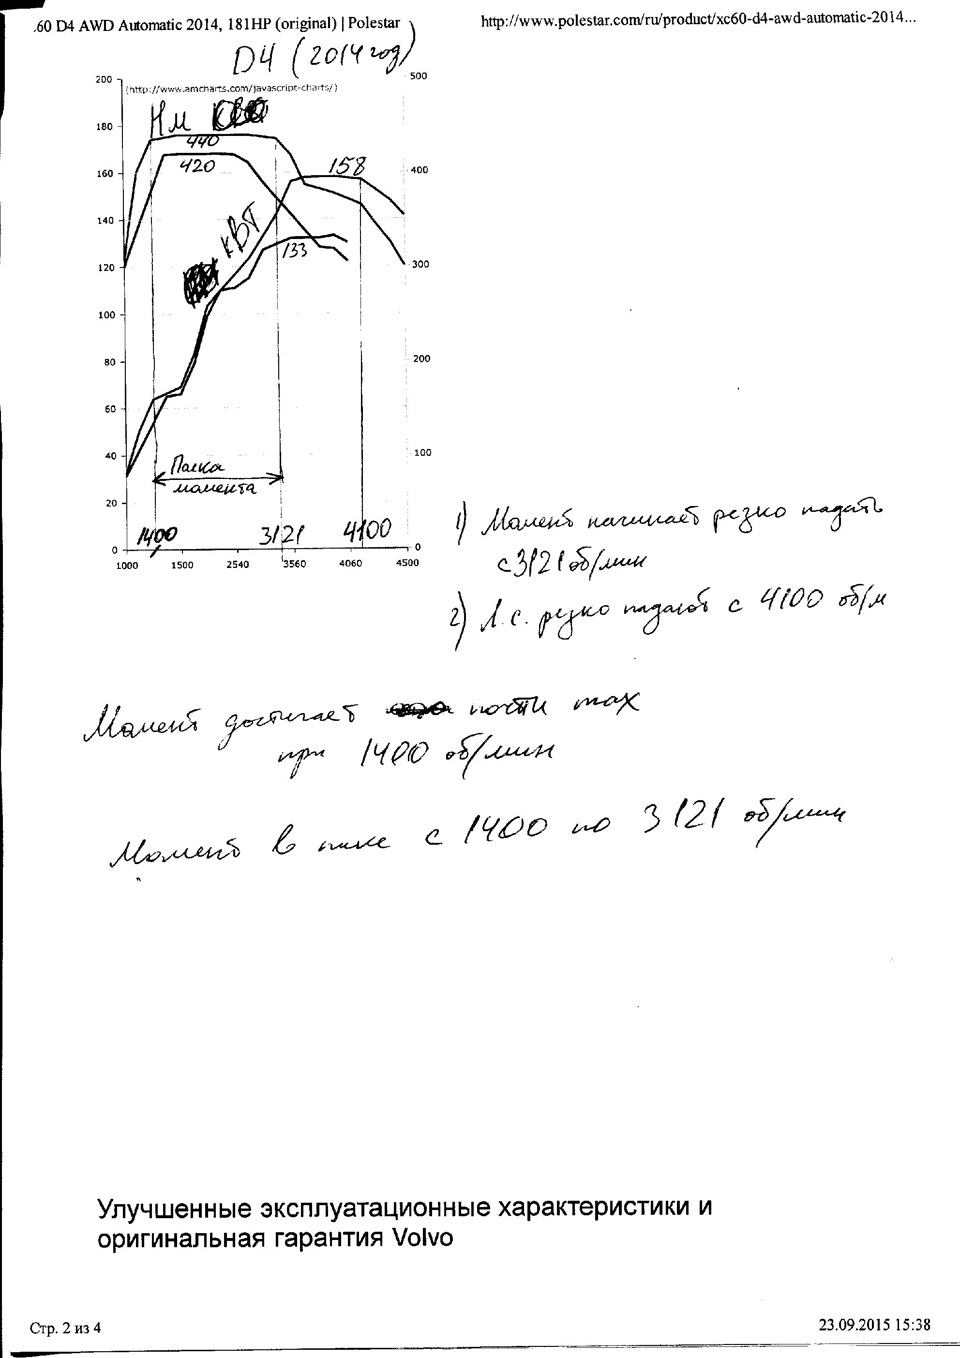 .60 D4 AWD Automatic 2014, 181HP (original) | Polestar
http://www.polestar.com/ru/product/xc60-d4-awd-automatic-2014...
D4 (2014 год)
(http://www.amcharts.com/javascript-charts/)
200
180
160
140
120
100
80
60
40
20
0
500
400
300
200
100
0
Нм
440
420
158
кВт
133
Полка
момента
1400
3121
4100
1000 1500 2540 3560 4060 4500
1) Момент начинает резко падать
с 3121 об/мин
2) Л.с. резко падают с 4100 об/м
Момент достигает почти max
при 1400 об/мин
Момент в пике с 1400 по 3121 об/мин
Улучшенные эксплуатационные характеристики и
оригинальная гарантия Volvo
Стр. 2 из 4
23.09.2015 15:38